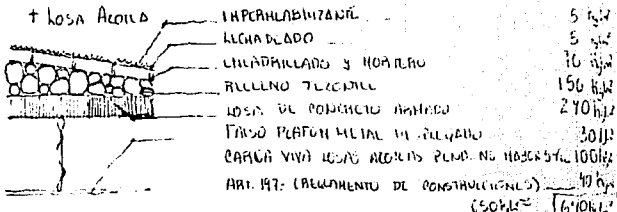 + LOSA AZOTEA
IMPERMEABILIZANTE 5 kg/m²
LECHADEADO 5 kg/m²
ENLADRILLADO Y MORTERO kg/m²
RELLENO TEZONTLE 156 kg/m²
LOSA DE CONCRETO ARMADO 240 kg/m²
FALSO PLAFON METAL DESPLEGADO 30
CARGA VIVA LOSAS AZOTEAS PEND. NO MAYOR 5% 100
ART. 197: (REGLAMENTO DE CONSTRUCCIONES) 40 kg/m²